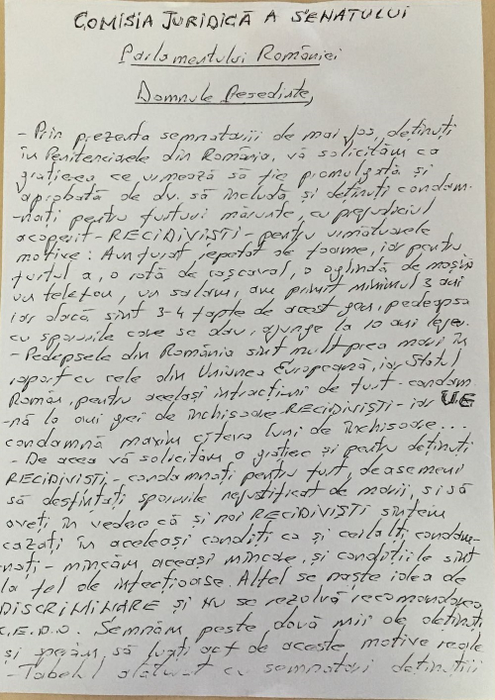 COMISIA JURIDICĂ A SENATULUI
Parlamentului României
Domnule Presedinte,
- Prin prezenta semnatarii de mai jos, deținuți
în Penitenciarele din România, vă solicităm ca
grațierea ce urmează să fie promulgată și
aprobată de dv. să includă și deținuți condam-
-nați pentru furturi mărunte, cu prejudiciul
acoperit - RECIDIVIȘTI - pentru următoarele
motive: Am furat repetat de foame, iar pentru
furtul a, o roată de cașcaval, o oglindă de mașină
un telefon, un salam, am primit minimul 3 ani
iar dacă sint 3-4 fapte de acest gen, pedeapsa
cu sporurile care se dau, ajunge la 10 ani
- Pedepsele din România sint mult prea mari în
raport cu cele din Uniunea Europeană, iar Statul
Român, pentru aceleași infracțiuni de furt - condam-
-nă la ani grei de închisoare RECIDIVIȘTI - iar UE
condamnă maxim câteva luni de închisoare...
- De aceea vă solicităm o grațiere și pentru deținuți
RECIDIVIȘTI - condamnați pentru furt, deasemeni
să desființați sporurile nejustificat de mari, si să
aveți în vedere că și noi RECIDIVIȘTI sintem
cazați în aceleași condiți ca și ceilalți condam-
nați - mîncăm aceași mîncare, și condițiile sînt
la fel de infecțioase. Altfel se naște ideea de
DISCRIMINARE și nu se rezolvă recomandarea
C.E.D.O. Semnăm peste două mii de deținuți
și sperăm să luați act de aceste motive reale
- Tabelul alăturat cu semnatari deținuții